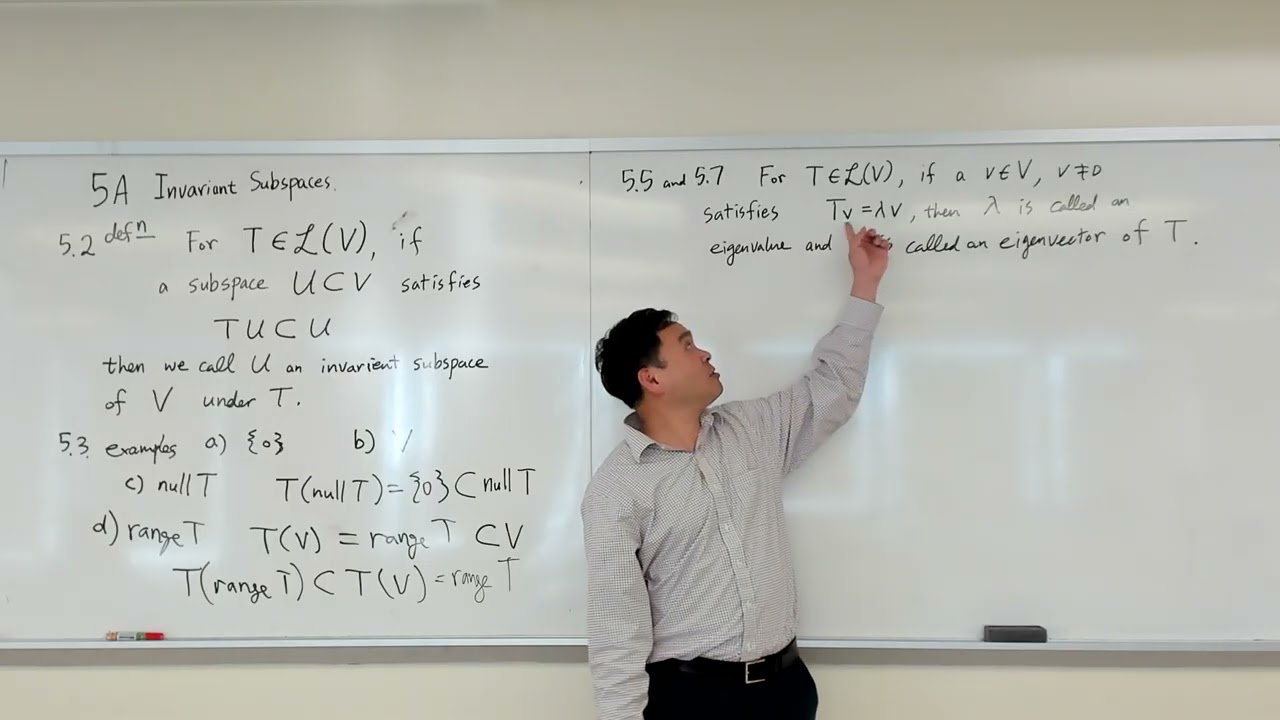 5A Invariant Subspaces.
5.2 defn For T∈ℒ(V), if
a subspace U⊂V satisfies
TU⊂U
then we call U an invarient subspace
of V under T.
5.3. examples a) {0} b) V
c) null T T(null T) = {0} ⊂ null T
d) range T T(V) = range T ⊂ V
T(range T) ⊂ T(V) = range T
5.5 and 5.7 For T∈ℒ(V), if a v∈V, v≠0
satisfies Tv = λv, then λ is called an
eigenvalue and called an eigenvector of T.